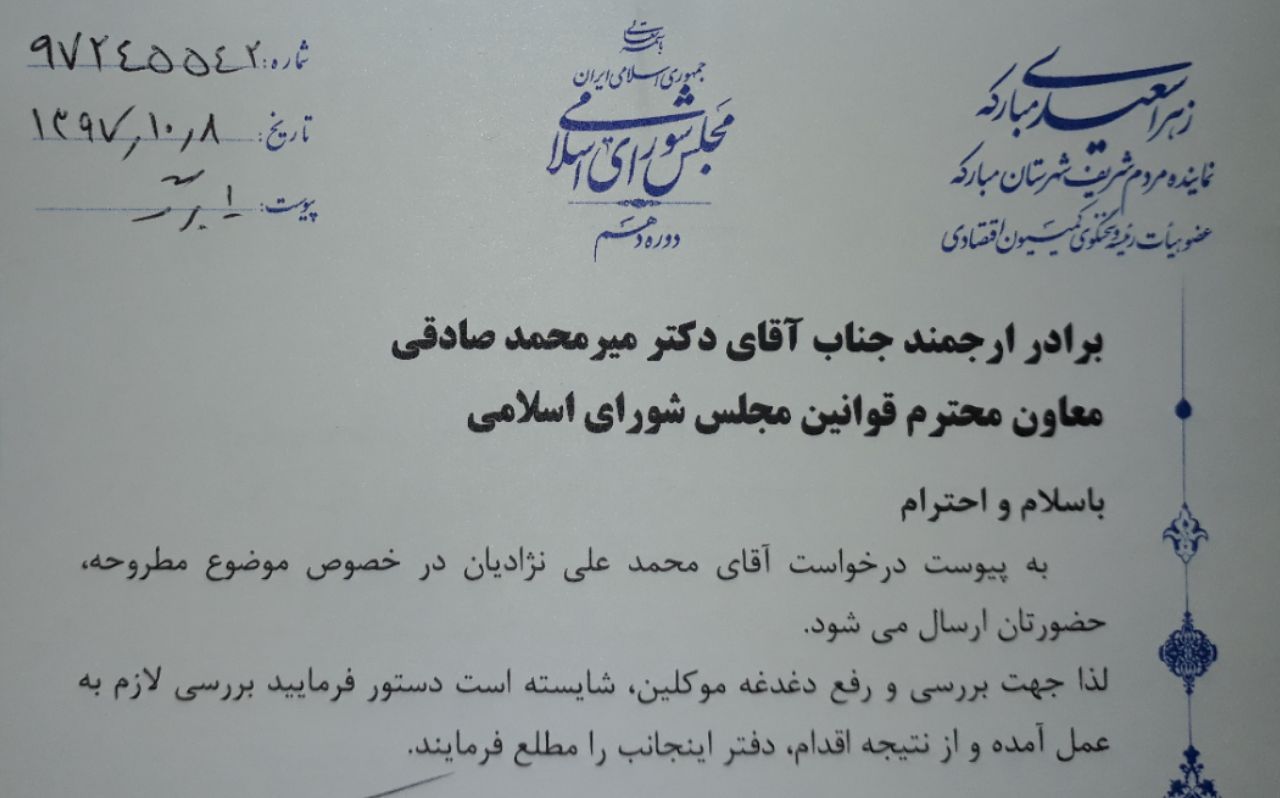 باسمه تعالی
جمهوری اسلامی ایران
مجلس شورای اسلامی
دوره دهم
زهرا سعیدی مبارکه
نماینده مردم شریف شهرستان مبارکه
عضو هیأت رئیسه و سخنگوی کمیسیون اقتصادی
شماره: ۹۷۲۴۵۵۴۲
تاریخ: ۱۳۹۷,۱۰,۸
پیوست:
برادر ارجمند جناب آقای دکتر میرمحمد صادقی
معاون محترم قوانین مجلس شورای اسلامی
باسلام و احترام
به پیوست درخواست آقای محمد علی نژادیان در خصوص موضوع مطروحه،
حضورتان ارسال می شود.
لذا جهت بررسی و رفع دغدغه موکلین، شایسته است دستور فرمایید بررسی لازم به
عمل آمده و از نتیجه اقدام، دفتر اینجانب را مطلع فرمایند.